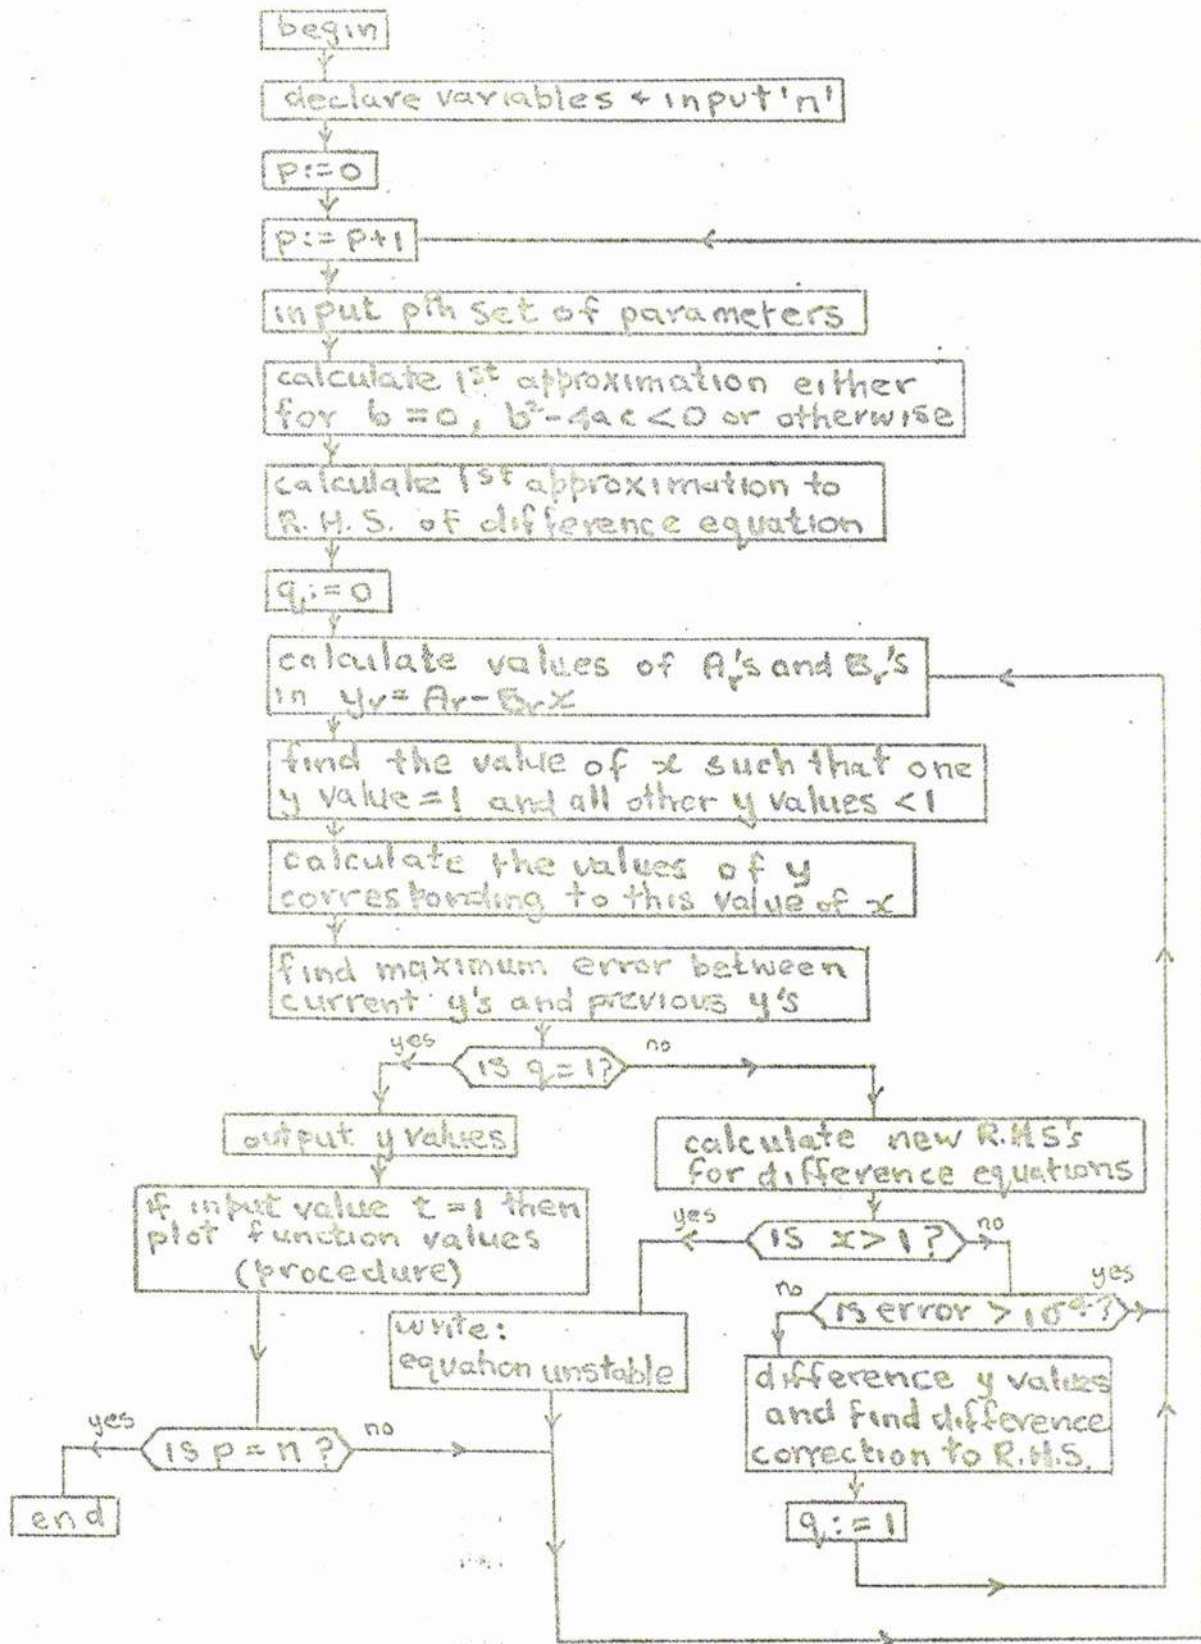 begin
declare variables + input 'n'
p:=0
p:=p+1
input pth set of parameters
calculate 1st approximation either
for b=0, b²-4ac<0 or otherwise
calculate 1st approximation to
R.H.S. of difference equation
q:=0
calculate values of Ar's and Br's
in yr=Ar-Brx
find the value of x such that one
y value=1 and all other y values <1
calculate the values of y
corresponding to this value of x
find maximum error between
current y's and previous y's
yes
is q=1?
no
output y values
calculate new R.H.S's
for difference equations
if input value t=1 then
plot function values
(procedure)
yes
is x>1?
no
no
is error >
yes
write:
equation unstable
difference y values
and find difference
correction to R.H.S.
yes
is p=n?
no
end
q:=1